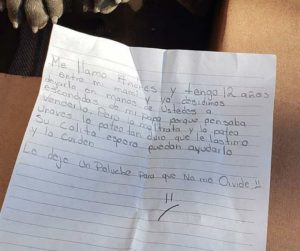 Me llamo Andres y tengo 12 años
entre mi mamá y yo decidimos
dejarla en manos de Ustedes a
escondidas de mi papá porque pensaba
venderla. Pero la maltrata y la patea
1 beses la pateo tan duro que le lastimo
Su Colita espero puedan ayudarlo
y lo cuiden
Le deje un Peluche para que No me Olvide